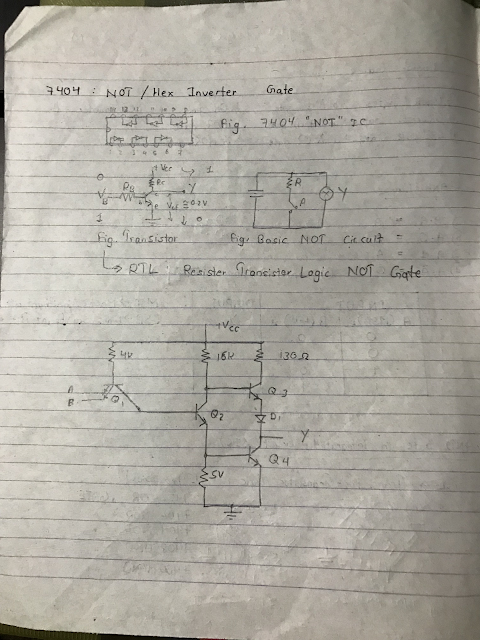 7404 : NOT / Hex Inverter Gate
Fig. 7404 "NOT" IC
+Vcc → 1
0
RB
Rc
Y
1
0
Fig. Transistor
R
A
Y
Fig. Basic NOT Circuit
↳ RTL : Resister Transistor Logic NOT Gate
+Vcc
4k
16k
130Ω
A
B
Q1
Q2
Q3
D1
Y
Q4
5V